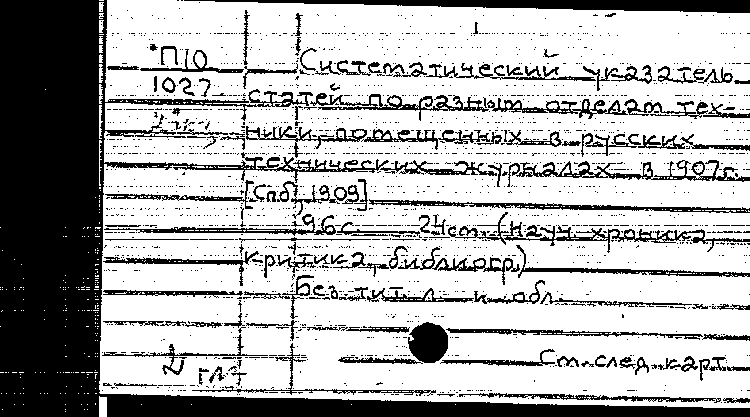 *П10
1027
Систематический указатель
статей по разным отделам тех-
ники, помещенных в русских
технических журналах в 1907г.
[Спб, 1909]
96с. 24cm. (Науч. хроника,
критика, библиогр.)
Без тит. л. и обл.
См. след. карт.